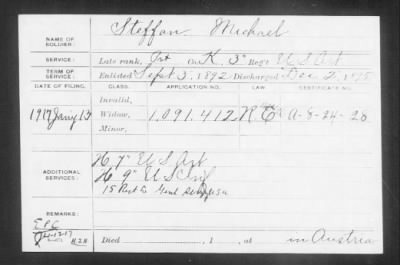 NAME OF SOLDIER: Steffan Michael
SERVICE: Late rank, Pvt Co. K, 3" Reg't U S Art
TERM OF SERVICE: Enlisted Sept 3, 1892 Discharged Dec 2, 1895
DATE OF FILING. CLASS. APPLICATION NO. LAW. CERTIFICATE NO.
Invalid,
1917 Jan'y 13 Widow, 1,091,412 A-8-24-20
Minor,
ADDITIONAL SERVICES: H, 7" U S Art
H 9" U S Inf
15 Rct Co Genl Serv USA
REMARKS:
Died , 1 , at in Austria